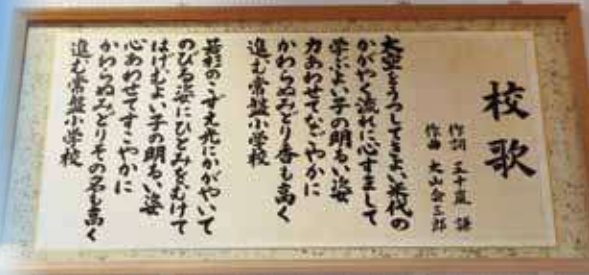 校歌
作詞 五十嵐 謙
作曲 大山会三郎
大空をうつしてきよい米代の
かがやく流れに心すまして
学ぶよい子の明るい姿
力あわせてなごやかに
かわらぬみどり香も高く
進む常盤小学校
のびる姿にひとみをむけて
はげむよい子の明るい姿
心あわせてすこやかに
かわらぬみどりその名も高く
進む常盤小学校